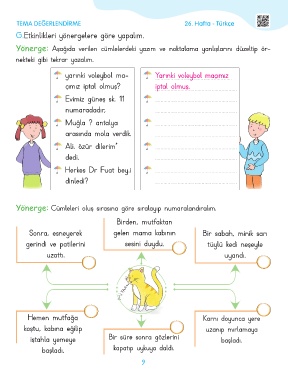 TEMA DEĞERLENDİRME
26. Hafta - Türkçe
G.Etkinlikleri yönergelere göre yapalım.
Yönerge: Aşağıda verilen cümlelerdeki yazım ve noktalama yanlışlarını düzeltip ör-
nekteki gibi tekrar yazalım.
yarınki voleybol ma-
çımız iptal olmuş?
Evimiz güneş sk. 11
numaradadır,
Muğla ? antalya
arasında mola verdik.
Ali, özür dilerim"
dedi.
Herkes Dr Fuat bey.i
dinledi?
Yarınki voleybol maçımız
iptal olmuş.
Yönerge: Cümleleri oluş sırasına göre sıralayıp numaralandıralım.
Sonra, esneyerek
gerindi ve patilerini
uzattı.
Birden, mutfaktan
gelen mama kabının
sesini duydu.
Bir sabah, minik sarı
tüylü kedi neşeyle
uyandı.
Hemen mutfağa
koştu, kabına eğilip
iştahla yemeye
başladı.
Bir süre sonra gözlerini
kapatıp uykuya daldı.
Karnı doyunca yere
uzanıp mırlamaya
başladı.
9